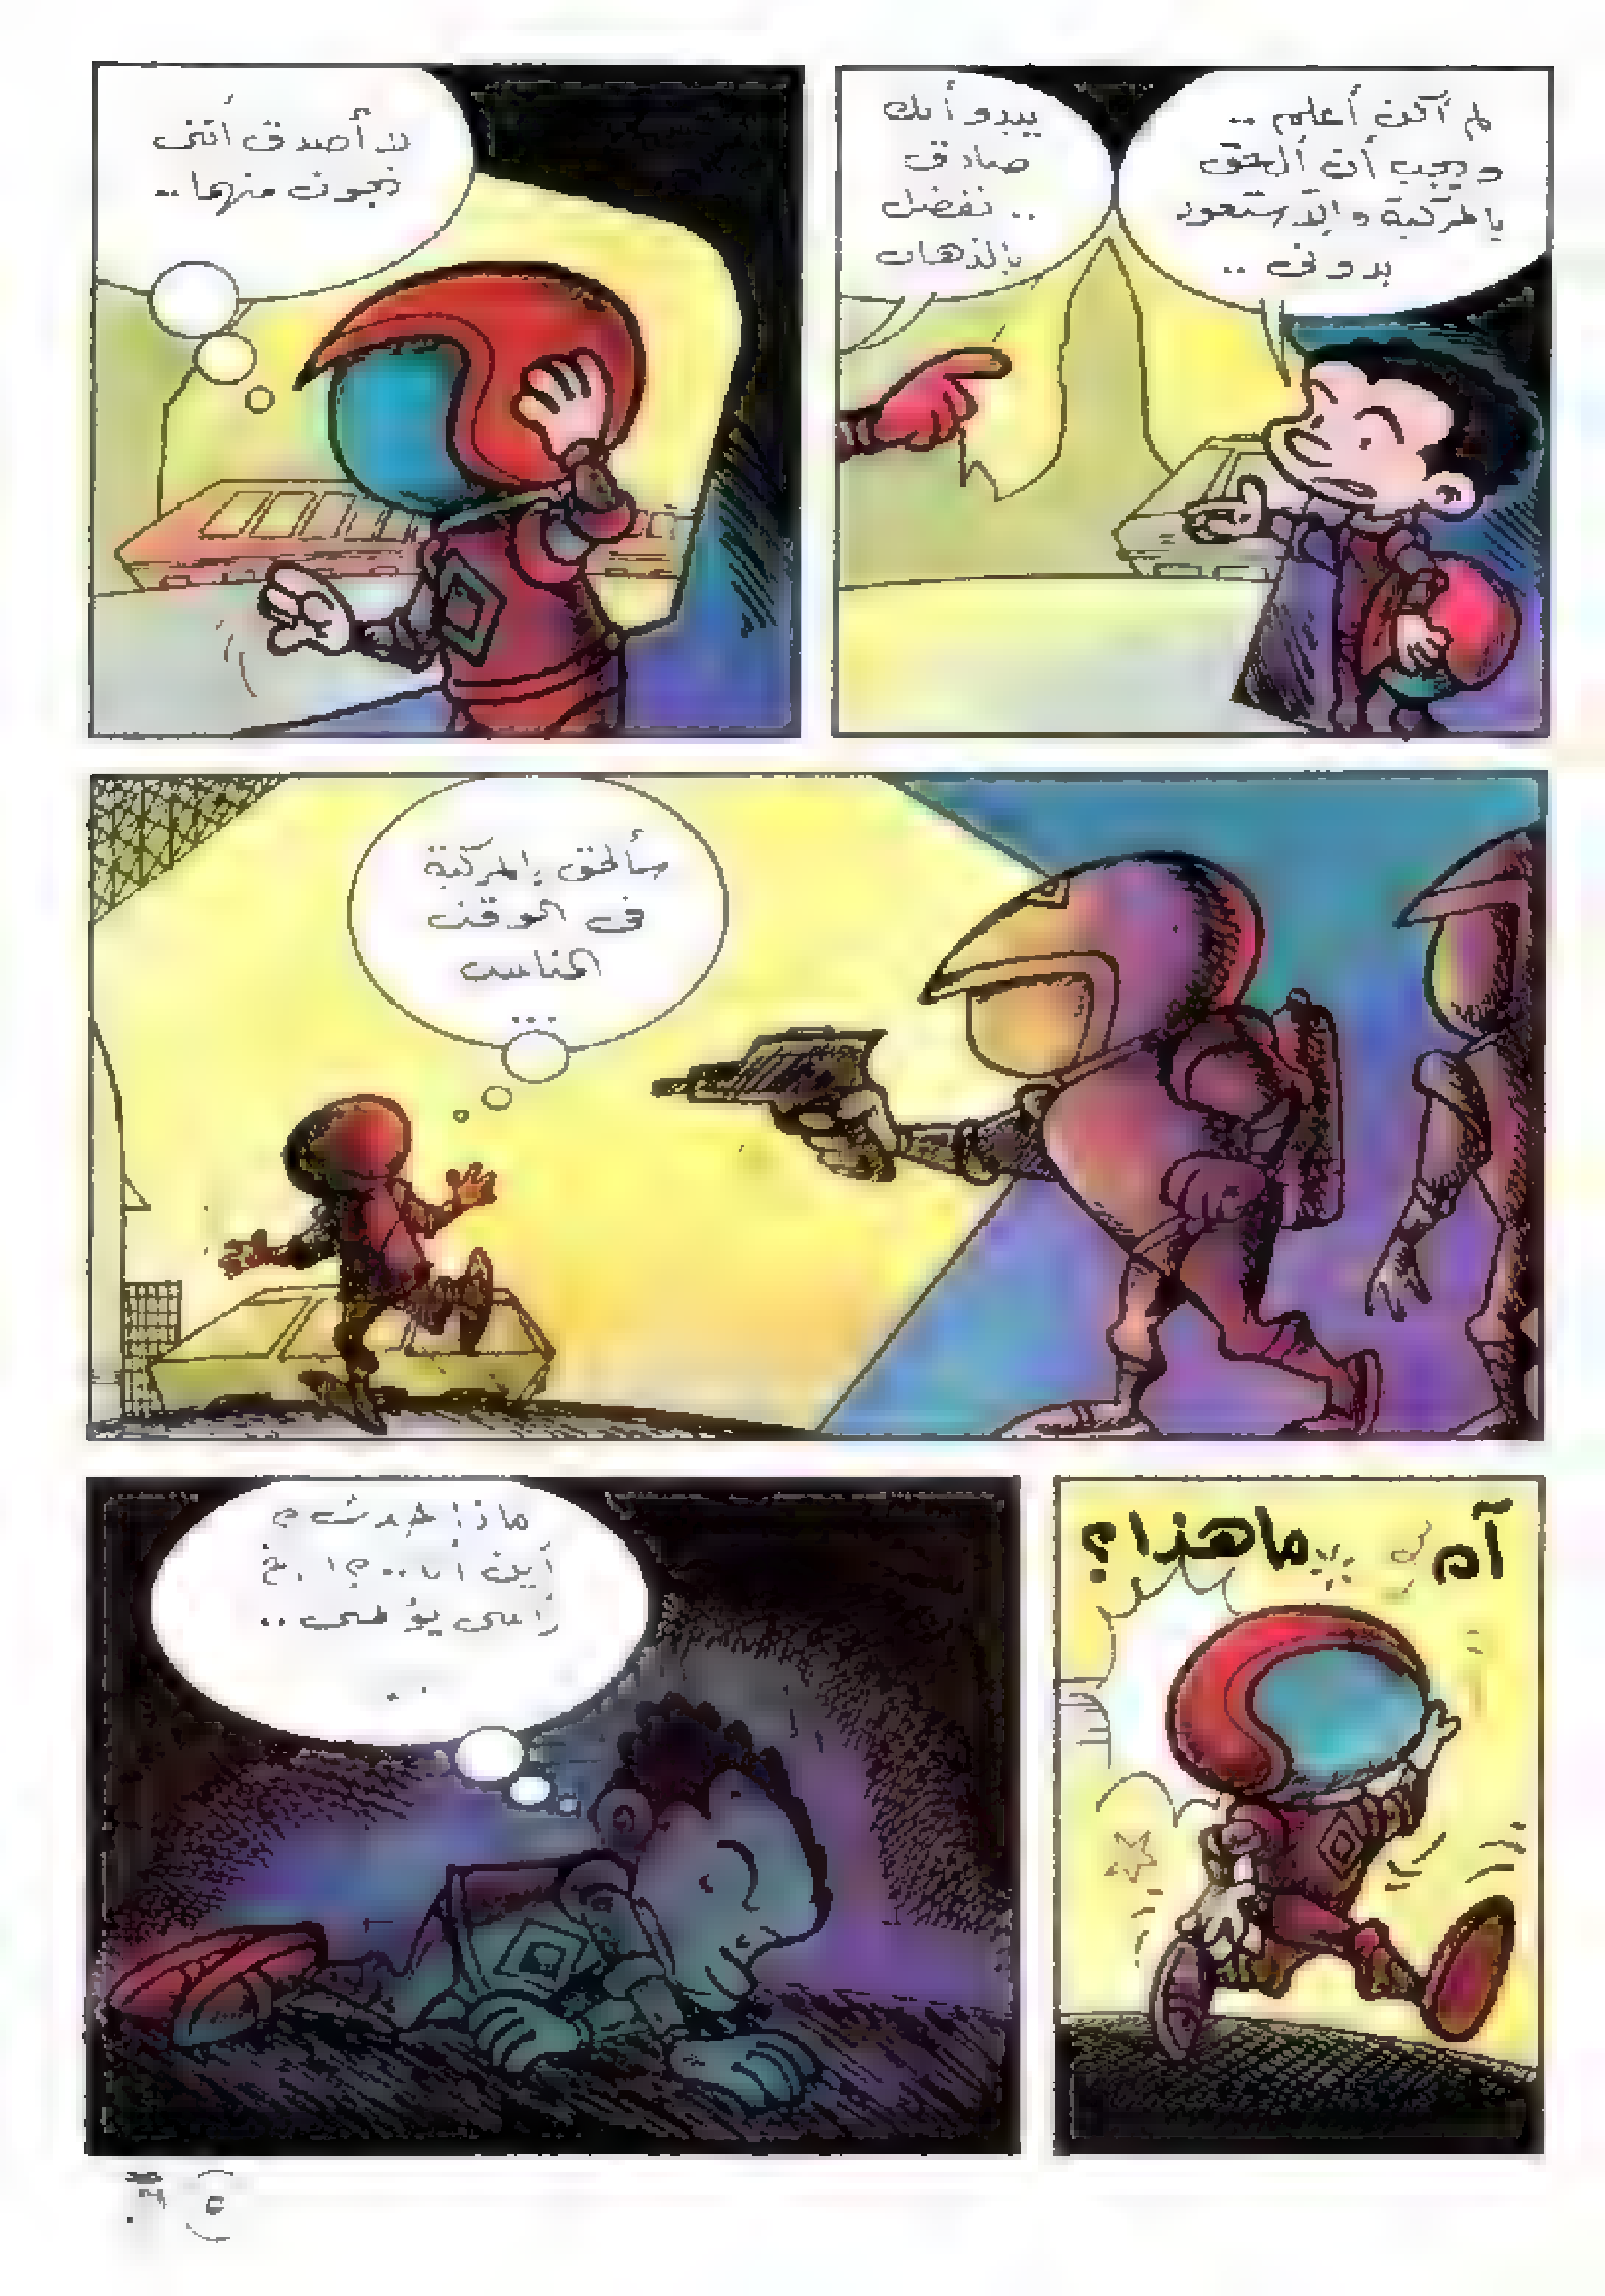 لم أكن أعلم ..
ويجب أن ألحق
بالمركبة وإلا ستعود
بدونى ..
يبدو أنك
صادق
.. تفضل
بالذهاب
لا أصدق أننى
نجوت منهما ..
سألحق بالمركبة
فى الوقت
المناسب
...
آه
ما هذا؟
ماذا حدث؟
أين أنا ..؟!
رأسى يؤلمنى ..
..
٥